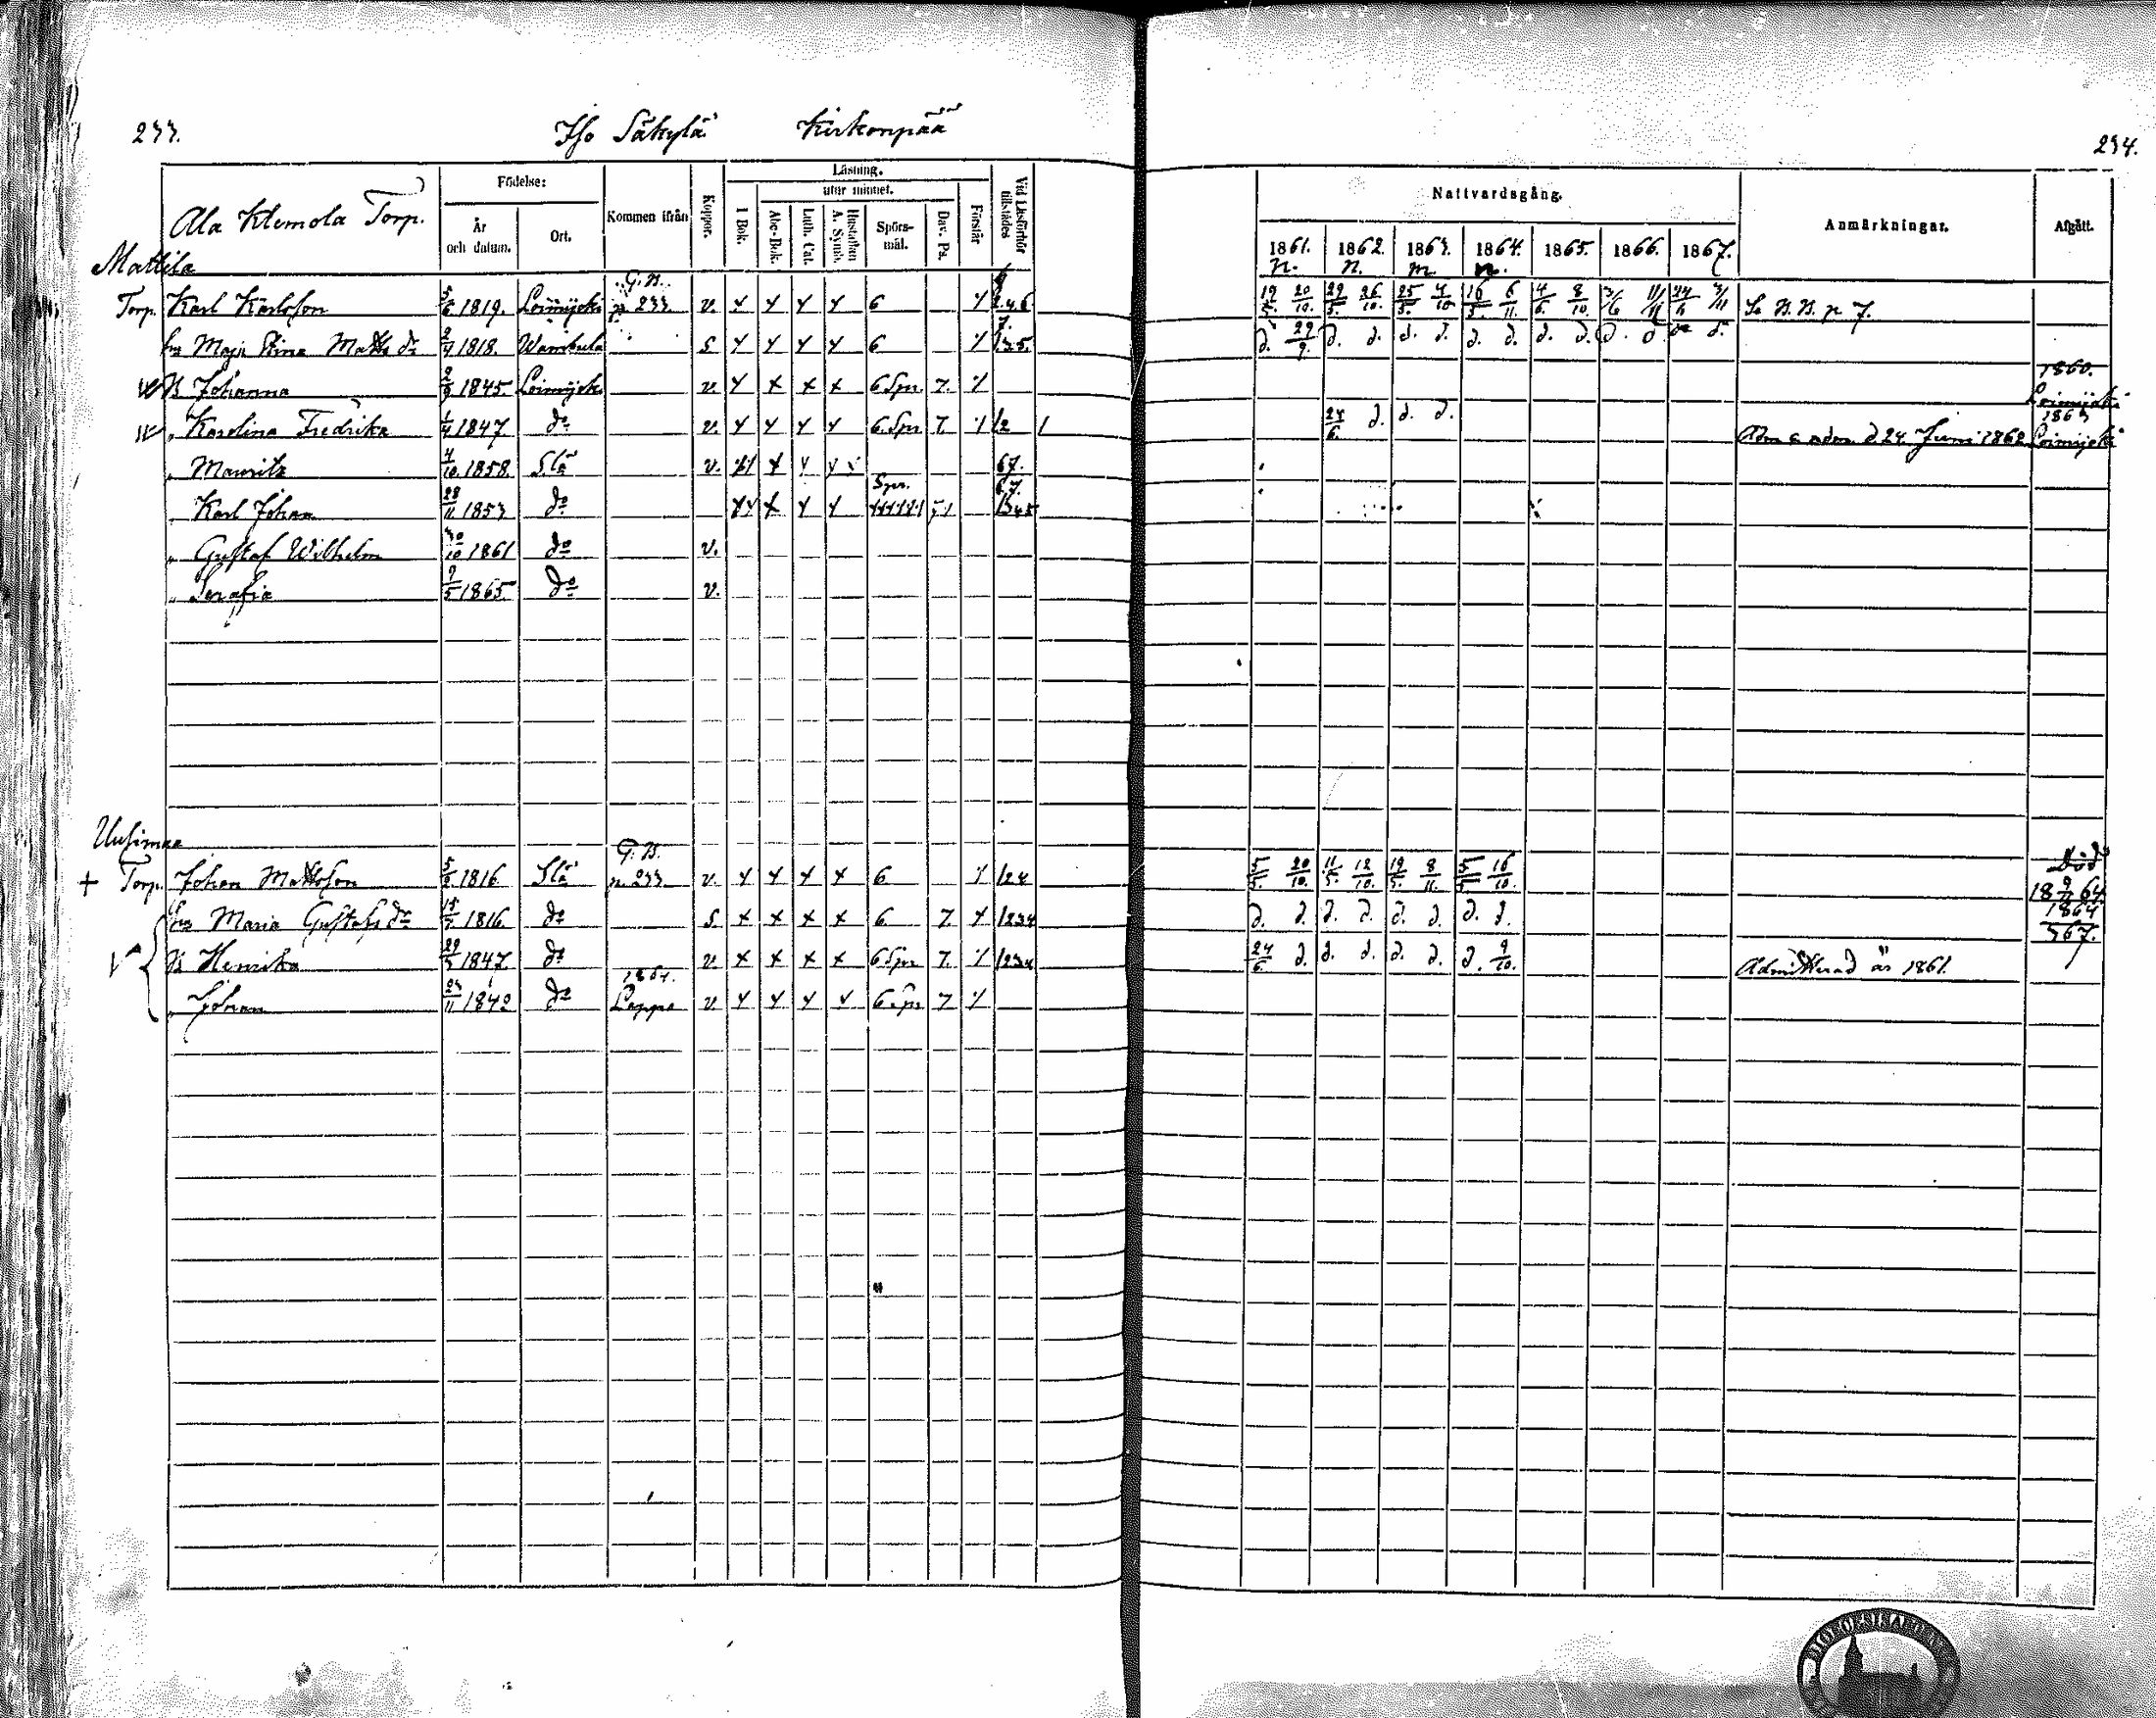 233. Iso Säkylä Kirkonpää 234.
Ala Klemola Torp.
Födelse: År och datum. Ort. Kommen ifrån Koppor. Läsning. I Bok. utur minnet. Abc-Bok. Luth. Cat. Hustaflan A. Symb. Spörs-mål. Dav. Ps. Förstår Vid Läsförhör tillstädes
Nattvardsgång. 1861. 1862. 1863. 1864. 1865. 1866. 1867. Anmärkningar. Afgått.
n. n. m. n.
Mattila
G. B.
Torp. Karl Karlsson 5/6 1819. Loimijoki p. 233. v. 6 246 19/5. 20/10. 29/5. 26/10. 25/5. 4/10 16/5. 6/11. 4/6. 8/10. Se B. B. p 7.
hu Maja Stina Matts dr 2/4 1818. Wambula s 6 7. 135. d. 29/9. d. d. d. d. d. d. d. d. d. d.
B Johanna 2/9 1845. Loimijoki v. 6 Spr. 7. 1860. Loimijoki
" Karolina Fredrika 1/4 1847 do v. 6. Spr 7. 12 24/6. d. d. d. Adm d 24 Juni 1862 1863 Loimijoki
" Mauritz 4/10 1858. Slä v. 67.
" Karl Johan 28/11 1853 do Spr. 67. 1345
" Gustaf Wilhelm 30/10 1861 do v.
" Serafia 9/5 1865. do v.
Uusimaa
G. B.
+ Torp. Johan Mattsson 5/2 1816 Slä p. 233 v. 6 124 5/5. 20/10. 11/5. 12/10. 19/5. 8/11. 5/5. 16/10. Död 18 64.
hu Maria Gustafs dr 15/7 1816. do s. 6. 7. 1234 d. d. d. d. d. d. d. d. 1864 567.
B Henrika 29/3 1847. do v. 6 Spr 7. 1234 24/6. d. d. d. d. d. d. 9/10. Admitterad år 1861.
" Johan 23/11 1842 do 1864. Lappo v. 6. Spr 7